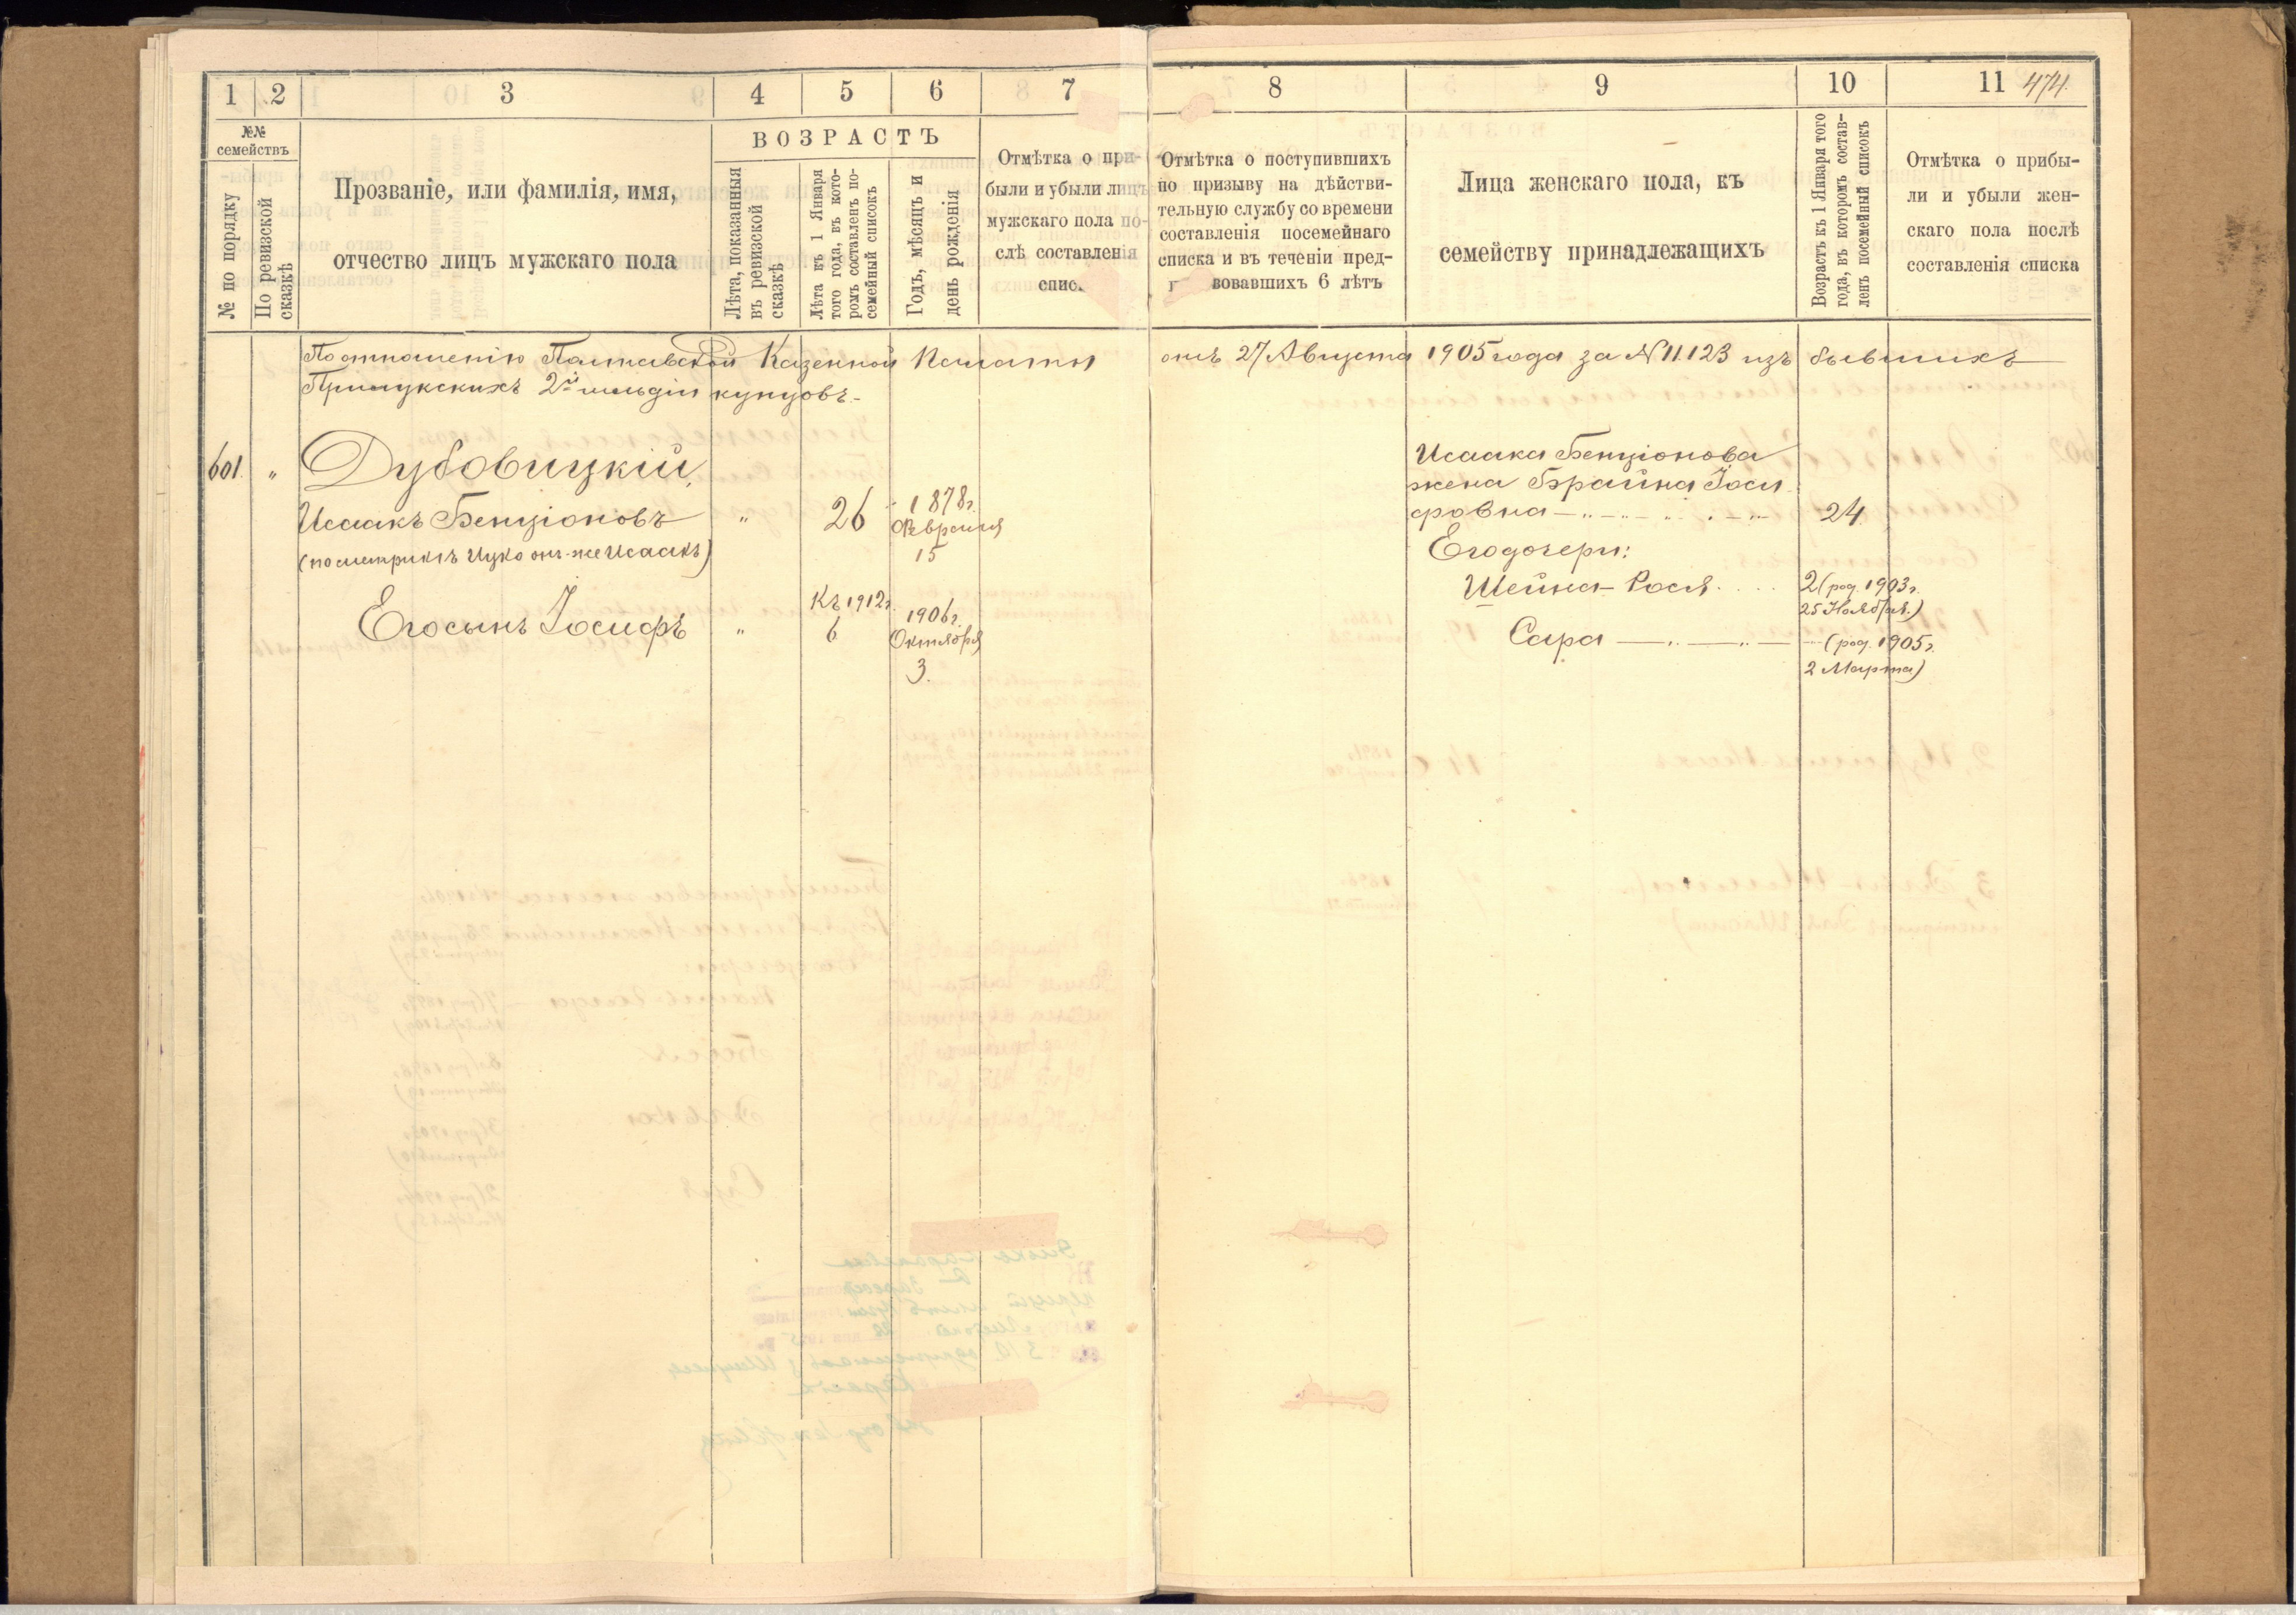 1 2 3 4 5 6 7 8 9 10 11 474.
№№
семействъ
№ по порядку
По ревизской
сказкѣ
Прозваніе, или фамилія, имя,
отчество лицъ мужскаго пола
ВОЗРАСТЪ
Лѣта, показанныя
въ ревизской
сказкѣ
Лѣта къ 1 Января
того года, въ кото-
ромъ составленъ по-
семейный списокъ
Годъ, мѣсяцъ и
день рожденія
Отмѣтка о при-
были и убыли лицъ
мужскаго пола по-
слѣ составленія
спис
Отмѣтка о поступившихъ
по призыву на дѣйстви-
тельную службу со времени
составленія посемейнаго
списка и въ теченіи пред-
вовавшихъ 6 лѣтъ
Лица женскаго пола, къ
семейству принадлежащихъ
Возрастъ къ 1 Января того
года, въ которомъ состав-
ленъ посемейный списокъ
Отмѣтка о прибы-
ли и убыли жен-
скаго пола послѣ
составленія списка
По отношенію Полтавской Казенной Палаты отъ 27 Августа 1905 года за № 11123 изъ бывшихъ
Прилукскихъ 2й гильдіи купцовъ.-
601. „ Дубовицкій,
Исаакъ Бенціоновъ „ 26 1878г.
Февраля
15
(по метрикѣ Ицко онъ-же Исаакъ)
Его сынъ Іосифъ „ Къ 1912г.
6 1906г.
Октября
3.
Исаака Бенціонова
жена Брайна Іоси
фовна 24
Его дочери:
Шейна-Рося 2 (род. 1903г.
25 Ноября.)
Сара — (род. 1905г.
2 Марта)